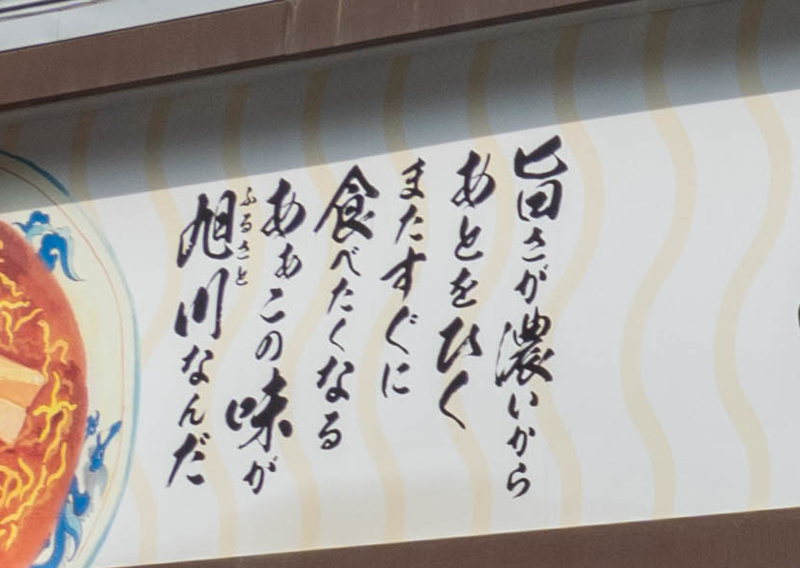 旨さが濃いから
あとをひく
またすぐに
食べたくなる
あぁこの味が
ふるさと
旭川なんだ